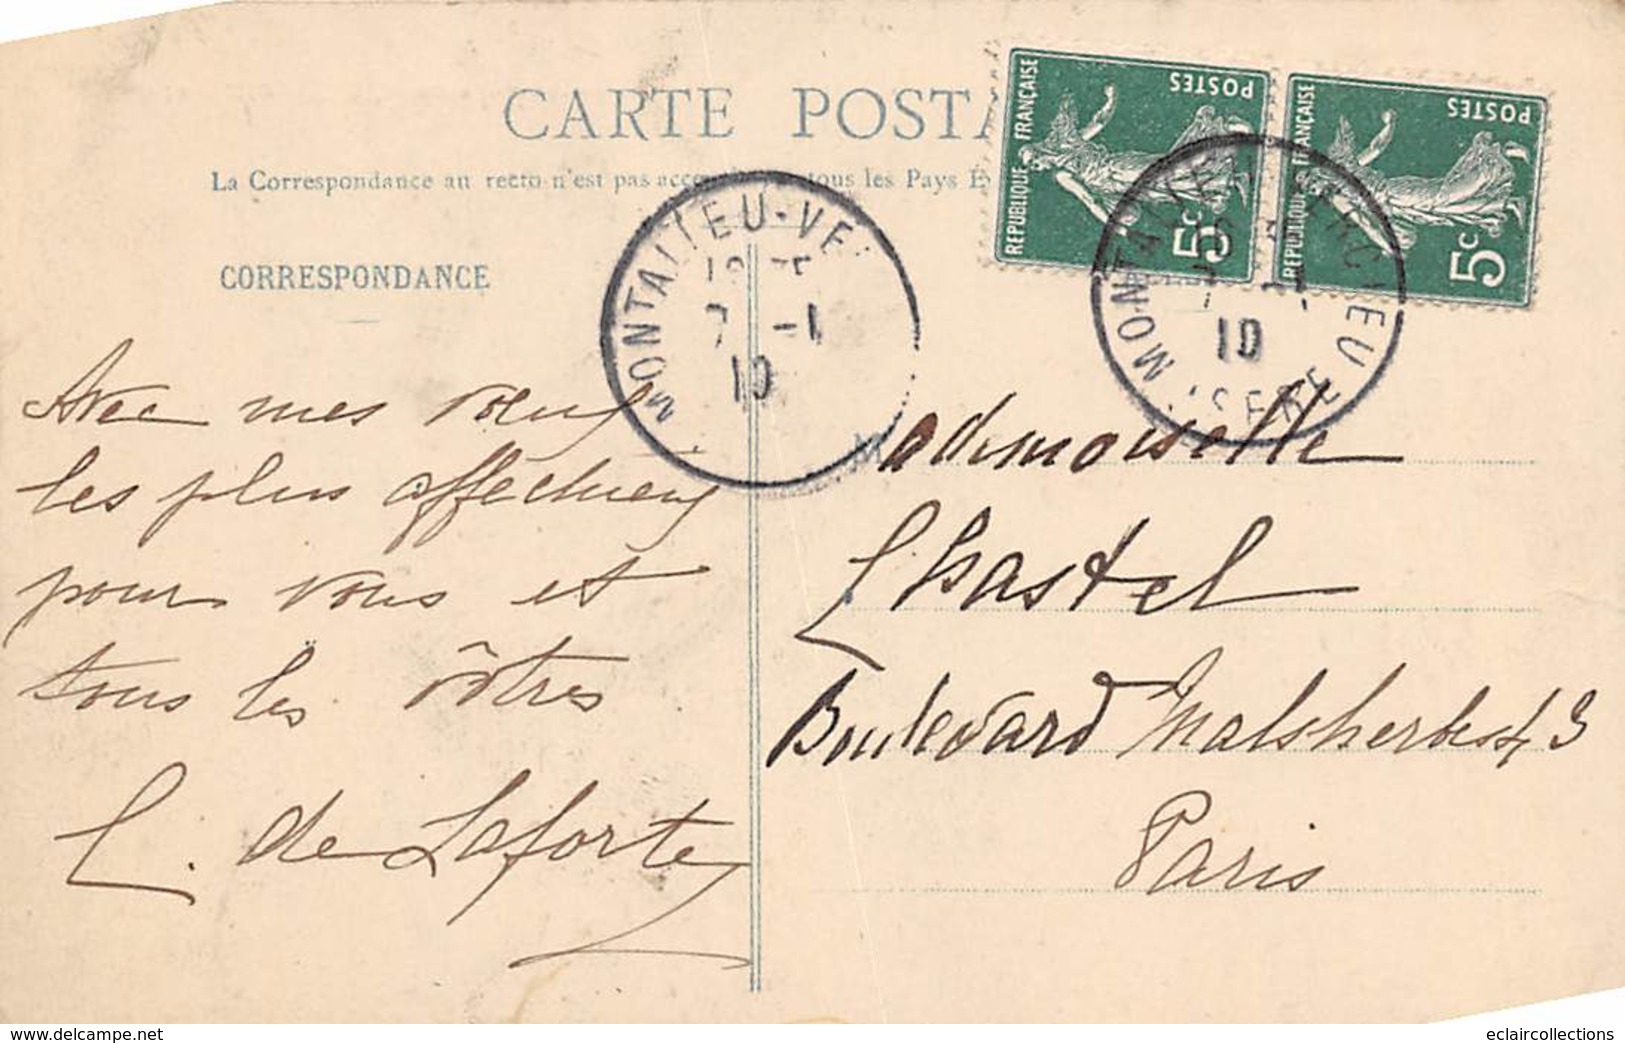 CARTE POSTA
La Correspondance au recto n'est pas acce tous les Pays É
CORRESPONDANCE
POSTES
REPUBLIQUE FRANÇAISE
5c
POSTES
REPUBLIQUE FRANÇAISE
5c
MONTALIEU-VE
7 -1
10
MONTALIEU
10
ISERE
Avec mes vœux
les plus affectueux
pour vous et
tous les vôtres
C. de Laforte
Mademoiselle
Chastel
Boulevard Malsherbes 43
Paris
www.delcampe.net
eclaircollections